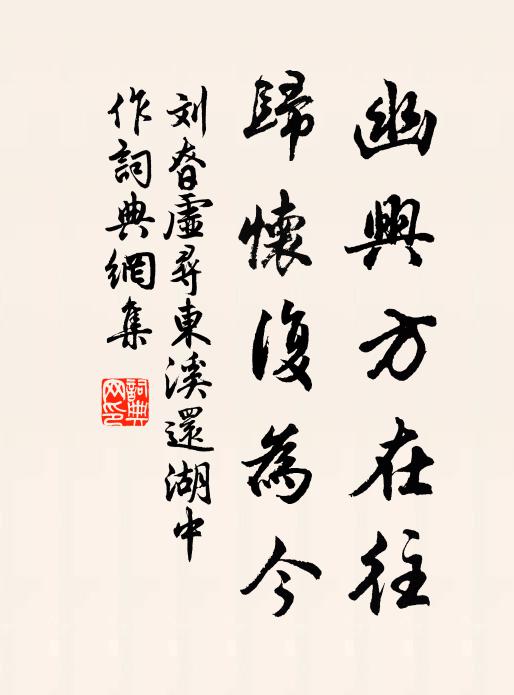 幽興方在往
歸懷復為今
刘眘虛尋東溪還湖中
作詞典網集
詞典網印